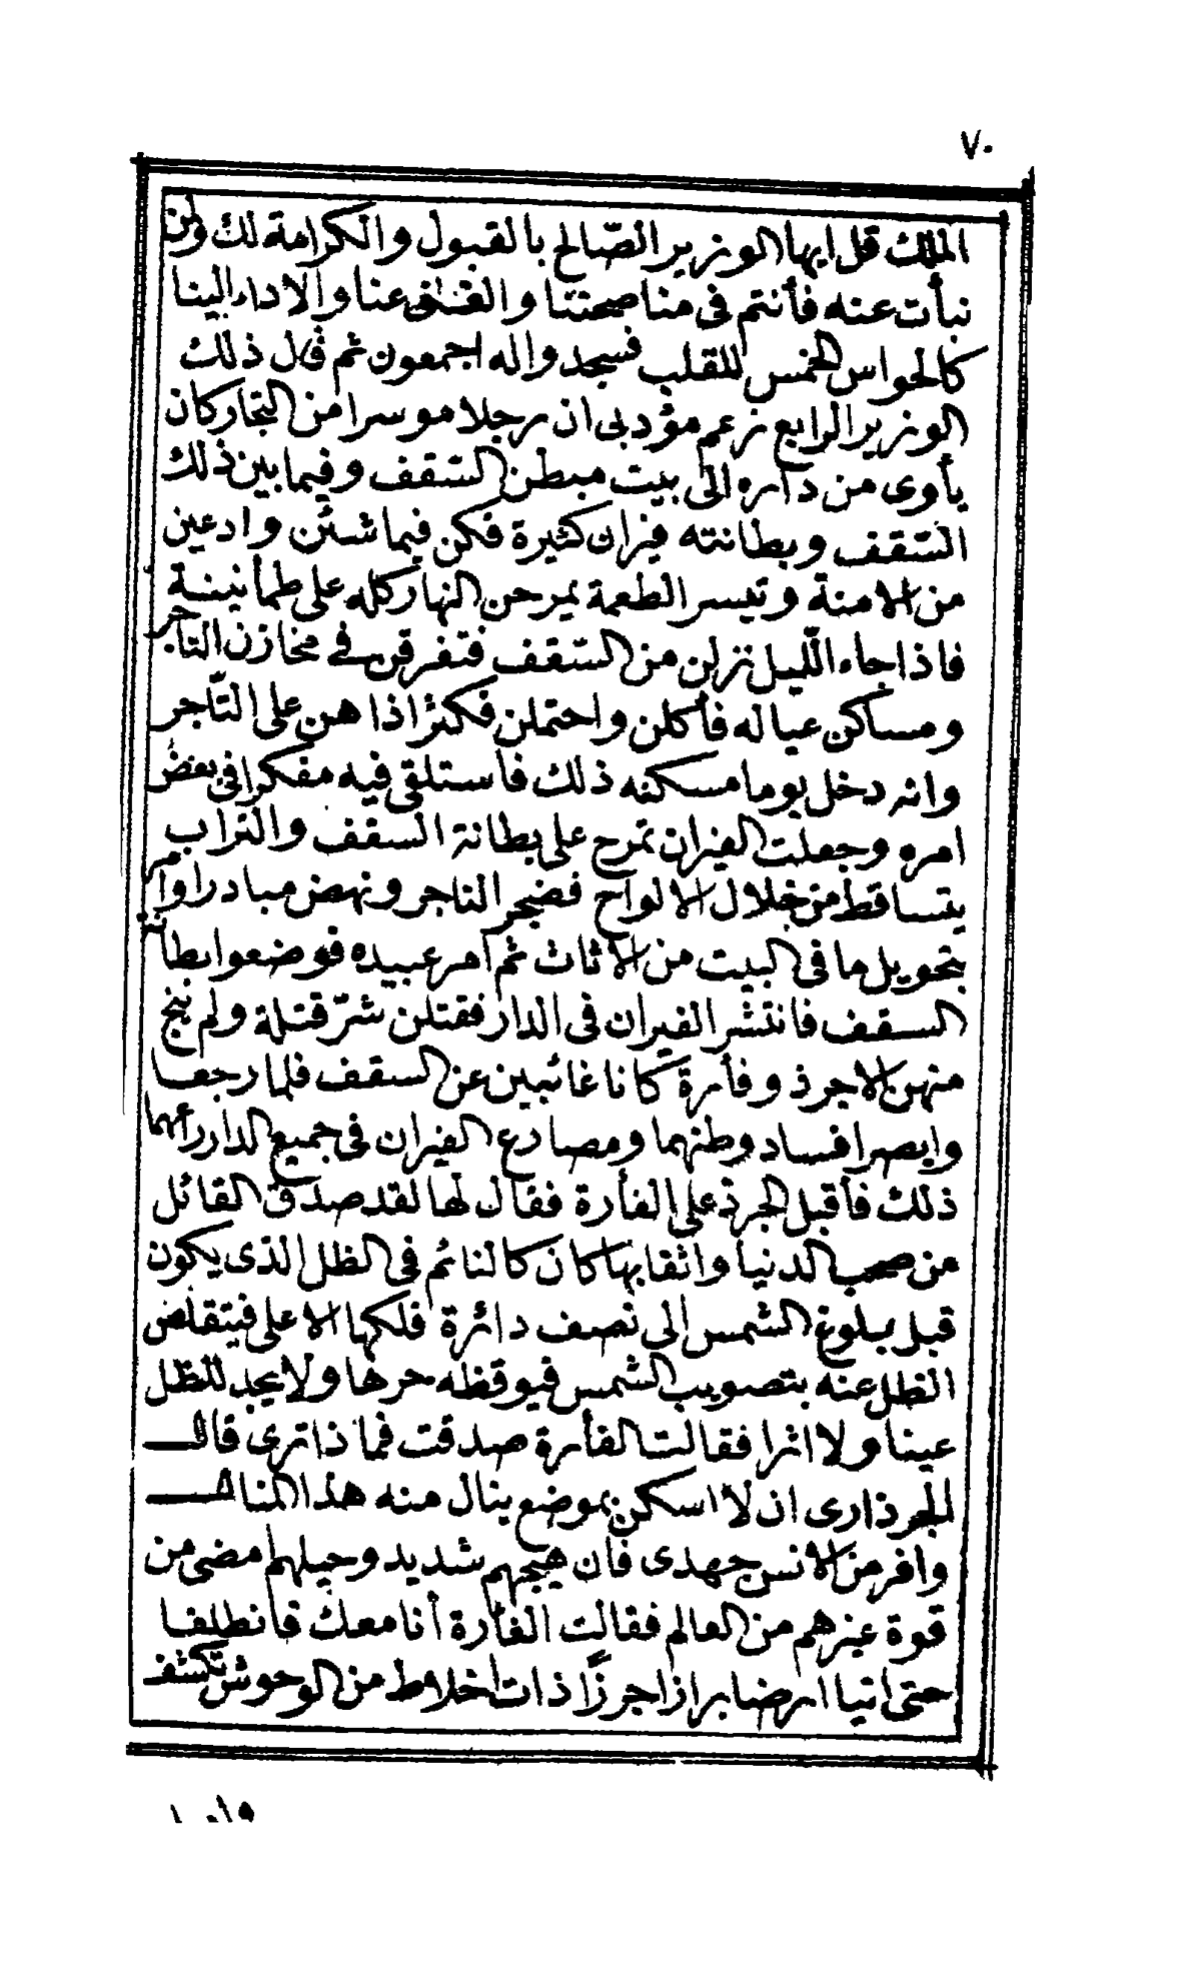 ٧٠
الملك قل ايها الوزير الصّالح بالقبول والكرامة لك ولمن
نبأت عنه فأنتم فى مناصحتنا والفنا عنا والاداء الينا
كالحواس الخمس للقلب فسجدوا له اجمعون ثم قال ذلك
الوزير الرابع زعم مؤدبى ان رجلا موسرا من التجار كان
يأوى من داره الى بيت مبطن السّقف وفيما بين ذلك
السّقف وبطانته فيران كثيرة فكن فيما شئن وادعين
من الامنة وتيسر الطعمة يمرحن النهار كله على طمأنينة
فاذا جاء اللّيل نزلن من السّقف فتفرقن فى مخازن التاجر
ومساكن عياله فأكلن واحتملن فكثر اذا هن على التّاجر
وانه دخل يوما مسكنه ذلك فاستلقى فيه مفكرا فى بعض
امره وجعلت الفيران تمرح على بطانة السقف والتراب
يتساقط من خلال الالواح فضجر التاجر ونهض مبادرا وامر
بتحويل ما فى البيت من الاثاث ثم امر عبيده فوضعوا بطانة
السقف فانتشر الفيران فى الدار فقتلن شرّ قتلة ولم ينج
منهن الا جرذ وفأرة كانا غائبين عن السقف فلما رجعا
وابصرا فساد وطنهما ومصارع الفيران فى جميع الدار راعهما
ذلك فأقبل الجرذ على الفأرة فقال لها لقد صدق القائل
من صحب الدنيا واثقا بها كان كالنائم فى الظل الذى يكون
قبل بلوغ الشمس الى نصف دائرة فلكها الاعلى فيتقلص
الظل عنه بتصويب الشمس فيوقظه حرها ولا يجد للظل
عينا ولا اثرا فقالت الفأرة صدقت فما ذا ترى قال
الجرذ ارى ان لا اسكن بموضع ينال منه هذا المنال
وافر من الانس جهدى فان هيجهم شديد وحيلهم امضى من
قوة غيرهم من العالم فقالت الفأرة أنا معك فانطلقا
حتى اتيا ارضا برازا جرزًا ذات اخلاط من الوحوش تكشف